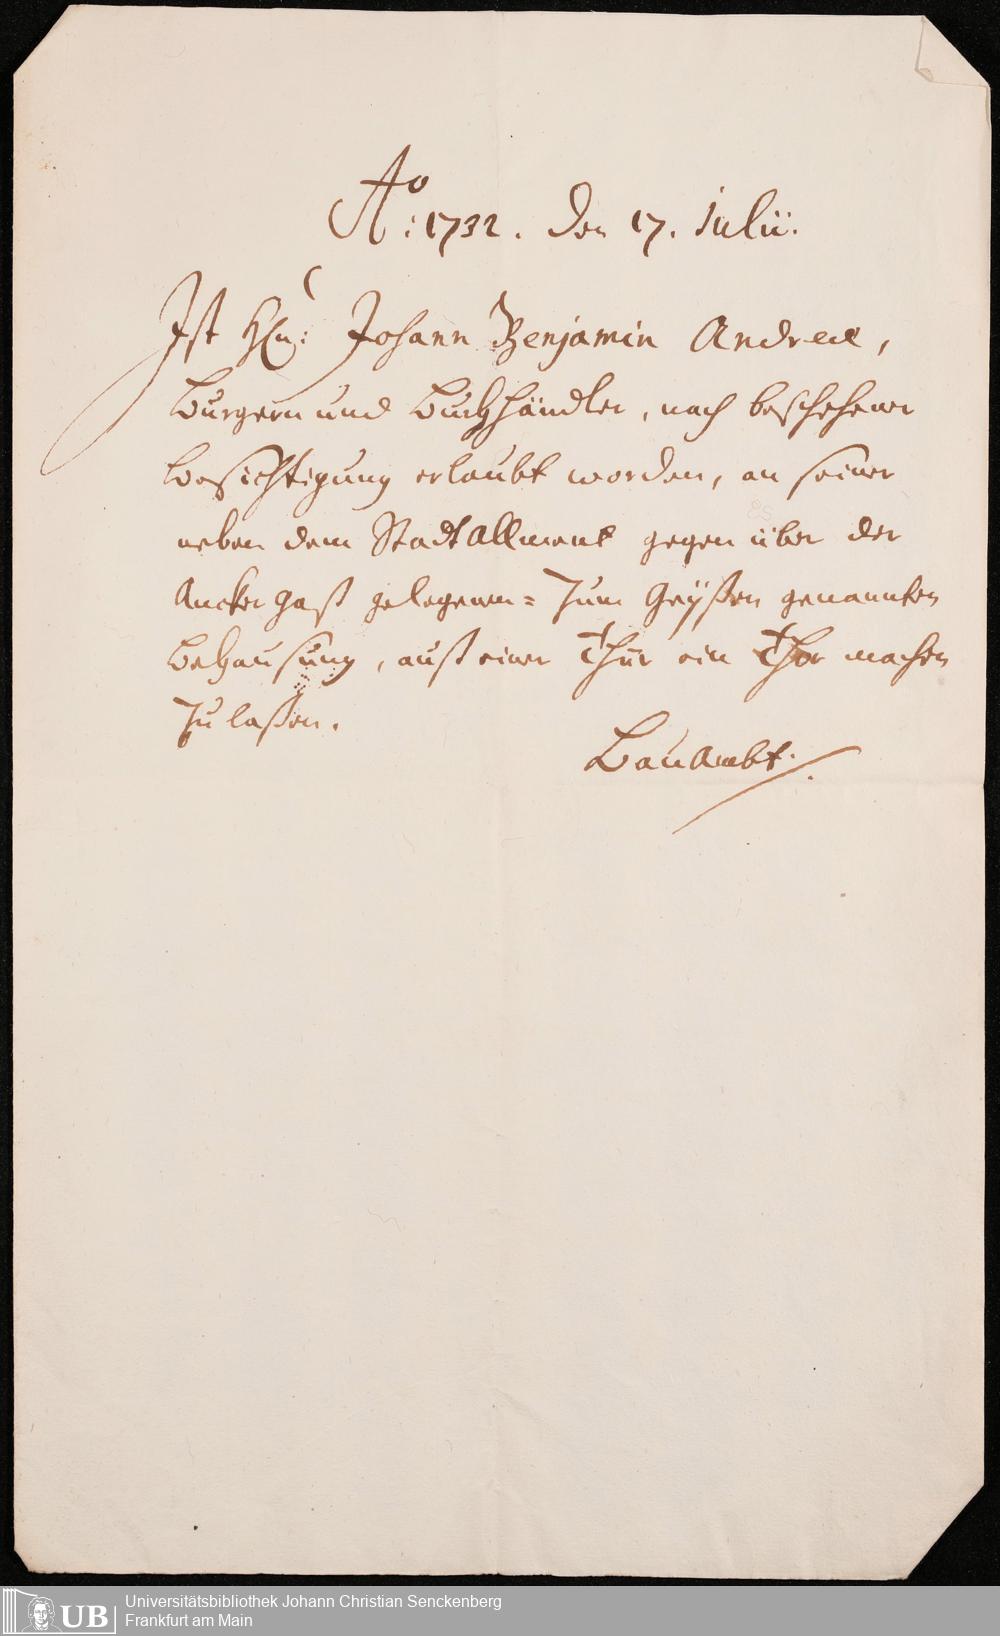 Ao: 1732. den 17. Julii.
Ist Hln: Johann Benjamin Andreae,
Burgern und Buchhändler, nach beschehener
besichtigung erlaubt worden, an seiner
neben dem Stadt Allment gegen über der
Ancker gaß gelegenen = zum Greÿffen genannten
Behausung, auß einer Thür ein Thor machen
zu laßen.
Bau Ambt.
UB
Universitätsbibliothek Johann Christian Senckenberg
Frankfurt am Main